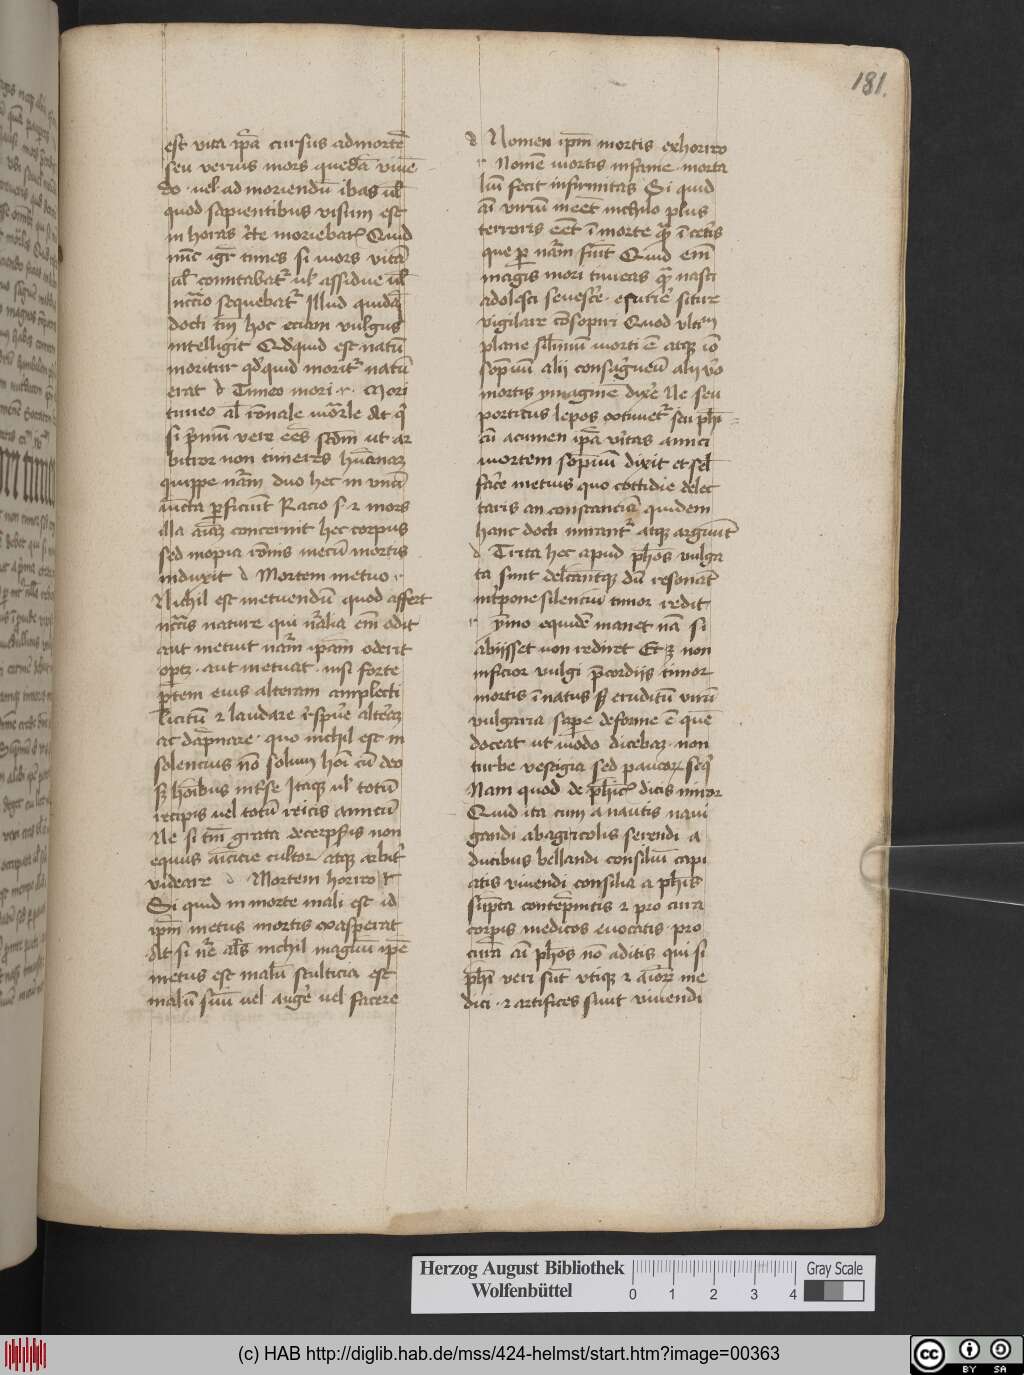 181.
est vita ip̄a cursus ad mortē
seu verius mors quedā viuē
do · uel ad moriendū ibas ul̄
quod sapientibus visum est
in horas c̄te moriebar Quid
nūc igr̄ times si mors vitā
ul̄ comitabatr̄ ul̄ assidue ul̄
nc̄cio sequebatr̄ Illud quidā
docti tm̄ hoc eciam vulgus
intelligit Qd̄quid est natū
moritur qd̄quid moritr̄ natū
erat d Timeo mori · r · Mori
timeo
si p̄mū vere ēes scd̄m ut ar
bitror non timeres hūanaʒ
quippe nām duo hec in vnū
iūcta perficiūt Racio s· ⁊ mors
illa aīaʒ concernit hec corpus
sed inopia rōnis metū mortis
induxit d Mortem metuo r
Nichil est metuendū quod affert
nc̄citas nature qui nālia em̄ odit
aut metuit nām ipam oderit
oportʒ · aut metuat · nisi forte
p̄tem eius alteram amplecti
licitū ⁊ laudare r̄spuere alterāʒ
ac dāpnare · quo nichil est in
solencius nō solum hoī cū deo
sʒ hoībus int̄ se Itaqʒ ul̄ totū
recipis uel totū reicis amicū
Ne si tm̄ grata decerpseris non
equus amicicie cultor atqʒ arbitr̄
videare d Mortem horreo r
Si quid in morte mali est id
ipm̄ metus mortis exasperat
At si ī re als nichil magnū ipē
metus est malū stulticia est
malū suū uel augere uel facere
d Nomen ipm̄ mortis exhorreo
r Nomē mortis infame · morta
liū fecit infirmitas Si quid
aī viriū īeēt nichilo plus
terroris eēt ī morte q̄ ī cet̄is
que per nām fiūt Quid em̄
magis mori timeas q̄ nasci
adolesci senescere · esurire sitire
vigilare cōsopiri Quod vltm̄
plane sil̄imū morti ē atqʒ iō
sopnū alii consāgneū alii vero
mortis ymaginē dixere Ne seu
poeticus lepos
cū acumen ip̄a veritas amici
mortem sopnū dixit et sol̄
facere metuis quo cottidie delec
taris an constanciā quidem
hanc docti mirantr̄ atqʒ arguūt
d Trita hec apud ph̄os vulga
ta sunt delectantqʒ dū resonāt
int̄pone silenciū timor redit
r ymo equidē manet nā si
abiisset non rediret Et ʒ non
inficior vulgi p̄cordiis timor
mortis īnatus sʒ eruditū virū
vulgaria sapere deforme ē quē
doceat ut modo dicebaʒ non
turbe vestigia sed paucorʒ seq̄
Nam quod de ph̄icis dicis miror
Quid ita cum a nautis naui
gandi ab agricolis serendi a
ducibus bellandi consiliū capi
atis viuendi consilia a ph̄is
sūpta contēpnitis ⁊ pro cura
corpis medicos euocatis · pro
cura aī ph̄os nō aditis qui si
ph̄i veri sūt vtiqʒ ⁊ aīorʒ me
dici · ⁊ artifices sunt viuendi
Herzog August Bibliothek
Wolfenbüttel
0 1 2 3 4
Gray Scale
(c) HAB http://diglib.hab.de/mss/424-helmst/start.htm?image=00363
cc BY SA